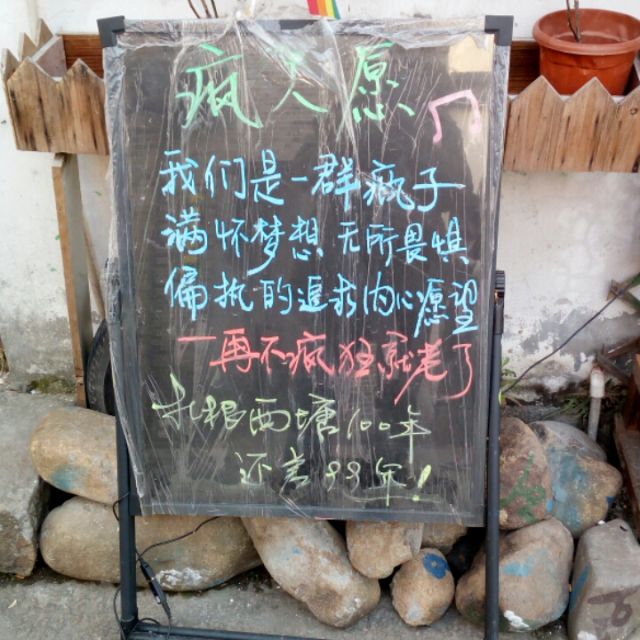 疯人愿
我们是一群疯子
满怀梦想 无所畏惧
偏执的追求内心愿望
一再不疯狂就老了
扎根西塘100年
还差99年!